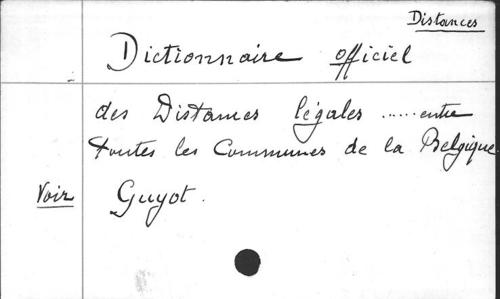 Distances
Dictionnaire officiel
des Distances légales ...... entre
toutes les Communes de la Belgique
Voir Guyot.